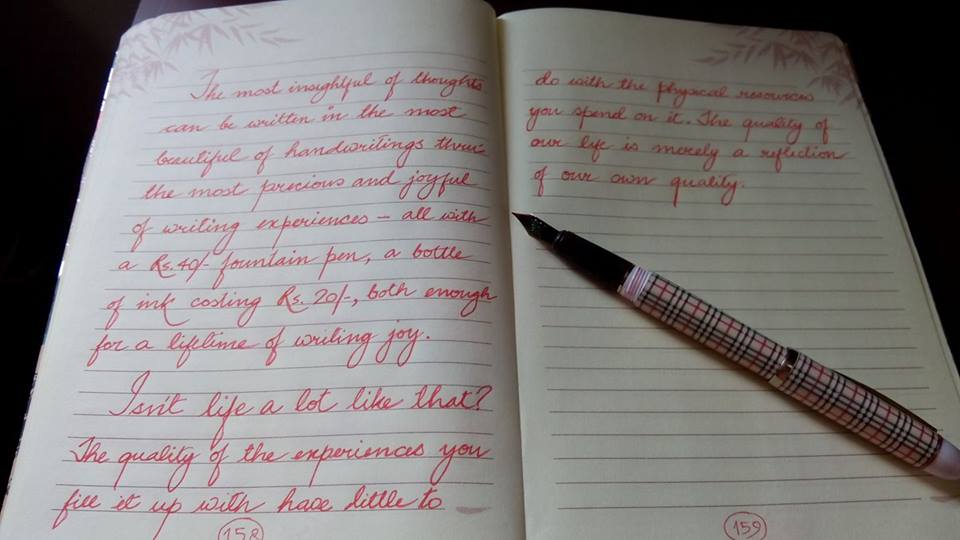 The most insightful of thoughts
can be written in the most
beautiful of handwritings thru
the most precious and joyful
of writing experiences – all with
a Rs. 40/- fountain pen, a bottle
of ink costing Rs. 20/-, both enough
for a lifetime of writing joy.
Isn't life a lot like that?
The quality of the experiences you
fill it up with have little to
158
do with the physical resources
you spend on it. The quality of
our life is merely a reflection
of our own quality.
159